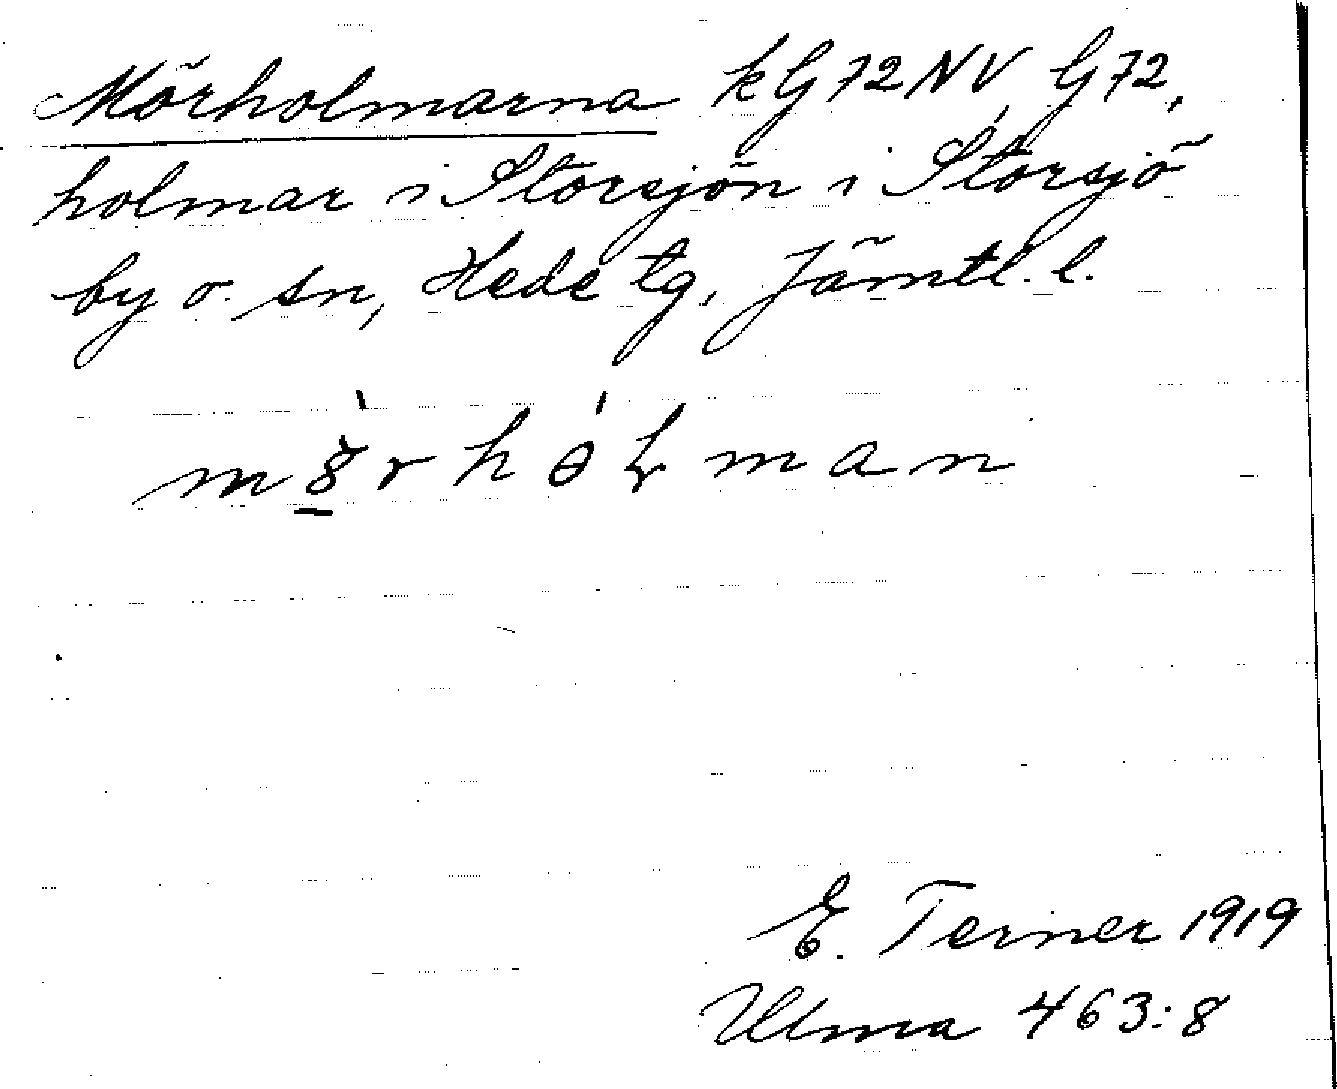 Mörholmarna kG 72 NV, G 72,
holmar i Storsjön i Storsjö
by o. sn, Hede tg, Jämtl. l.
E. Terner 1919
Ulma 463:8